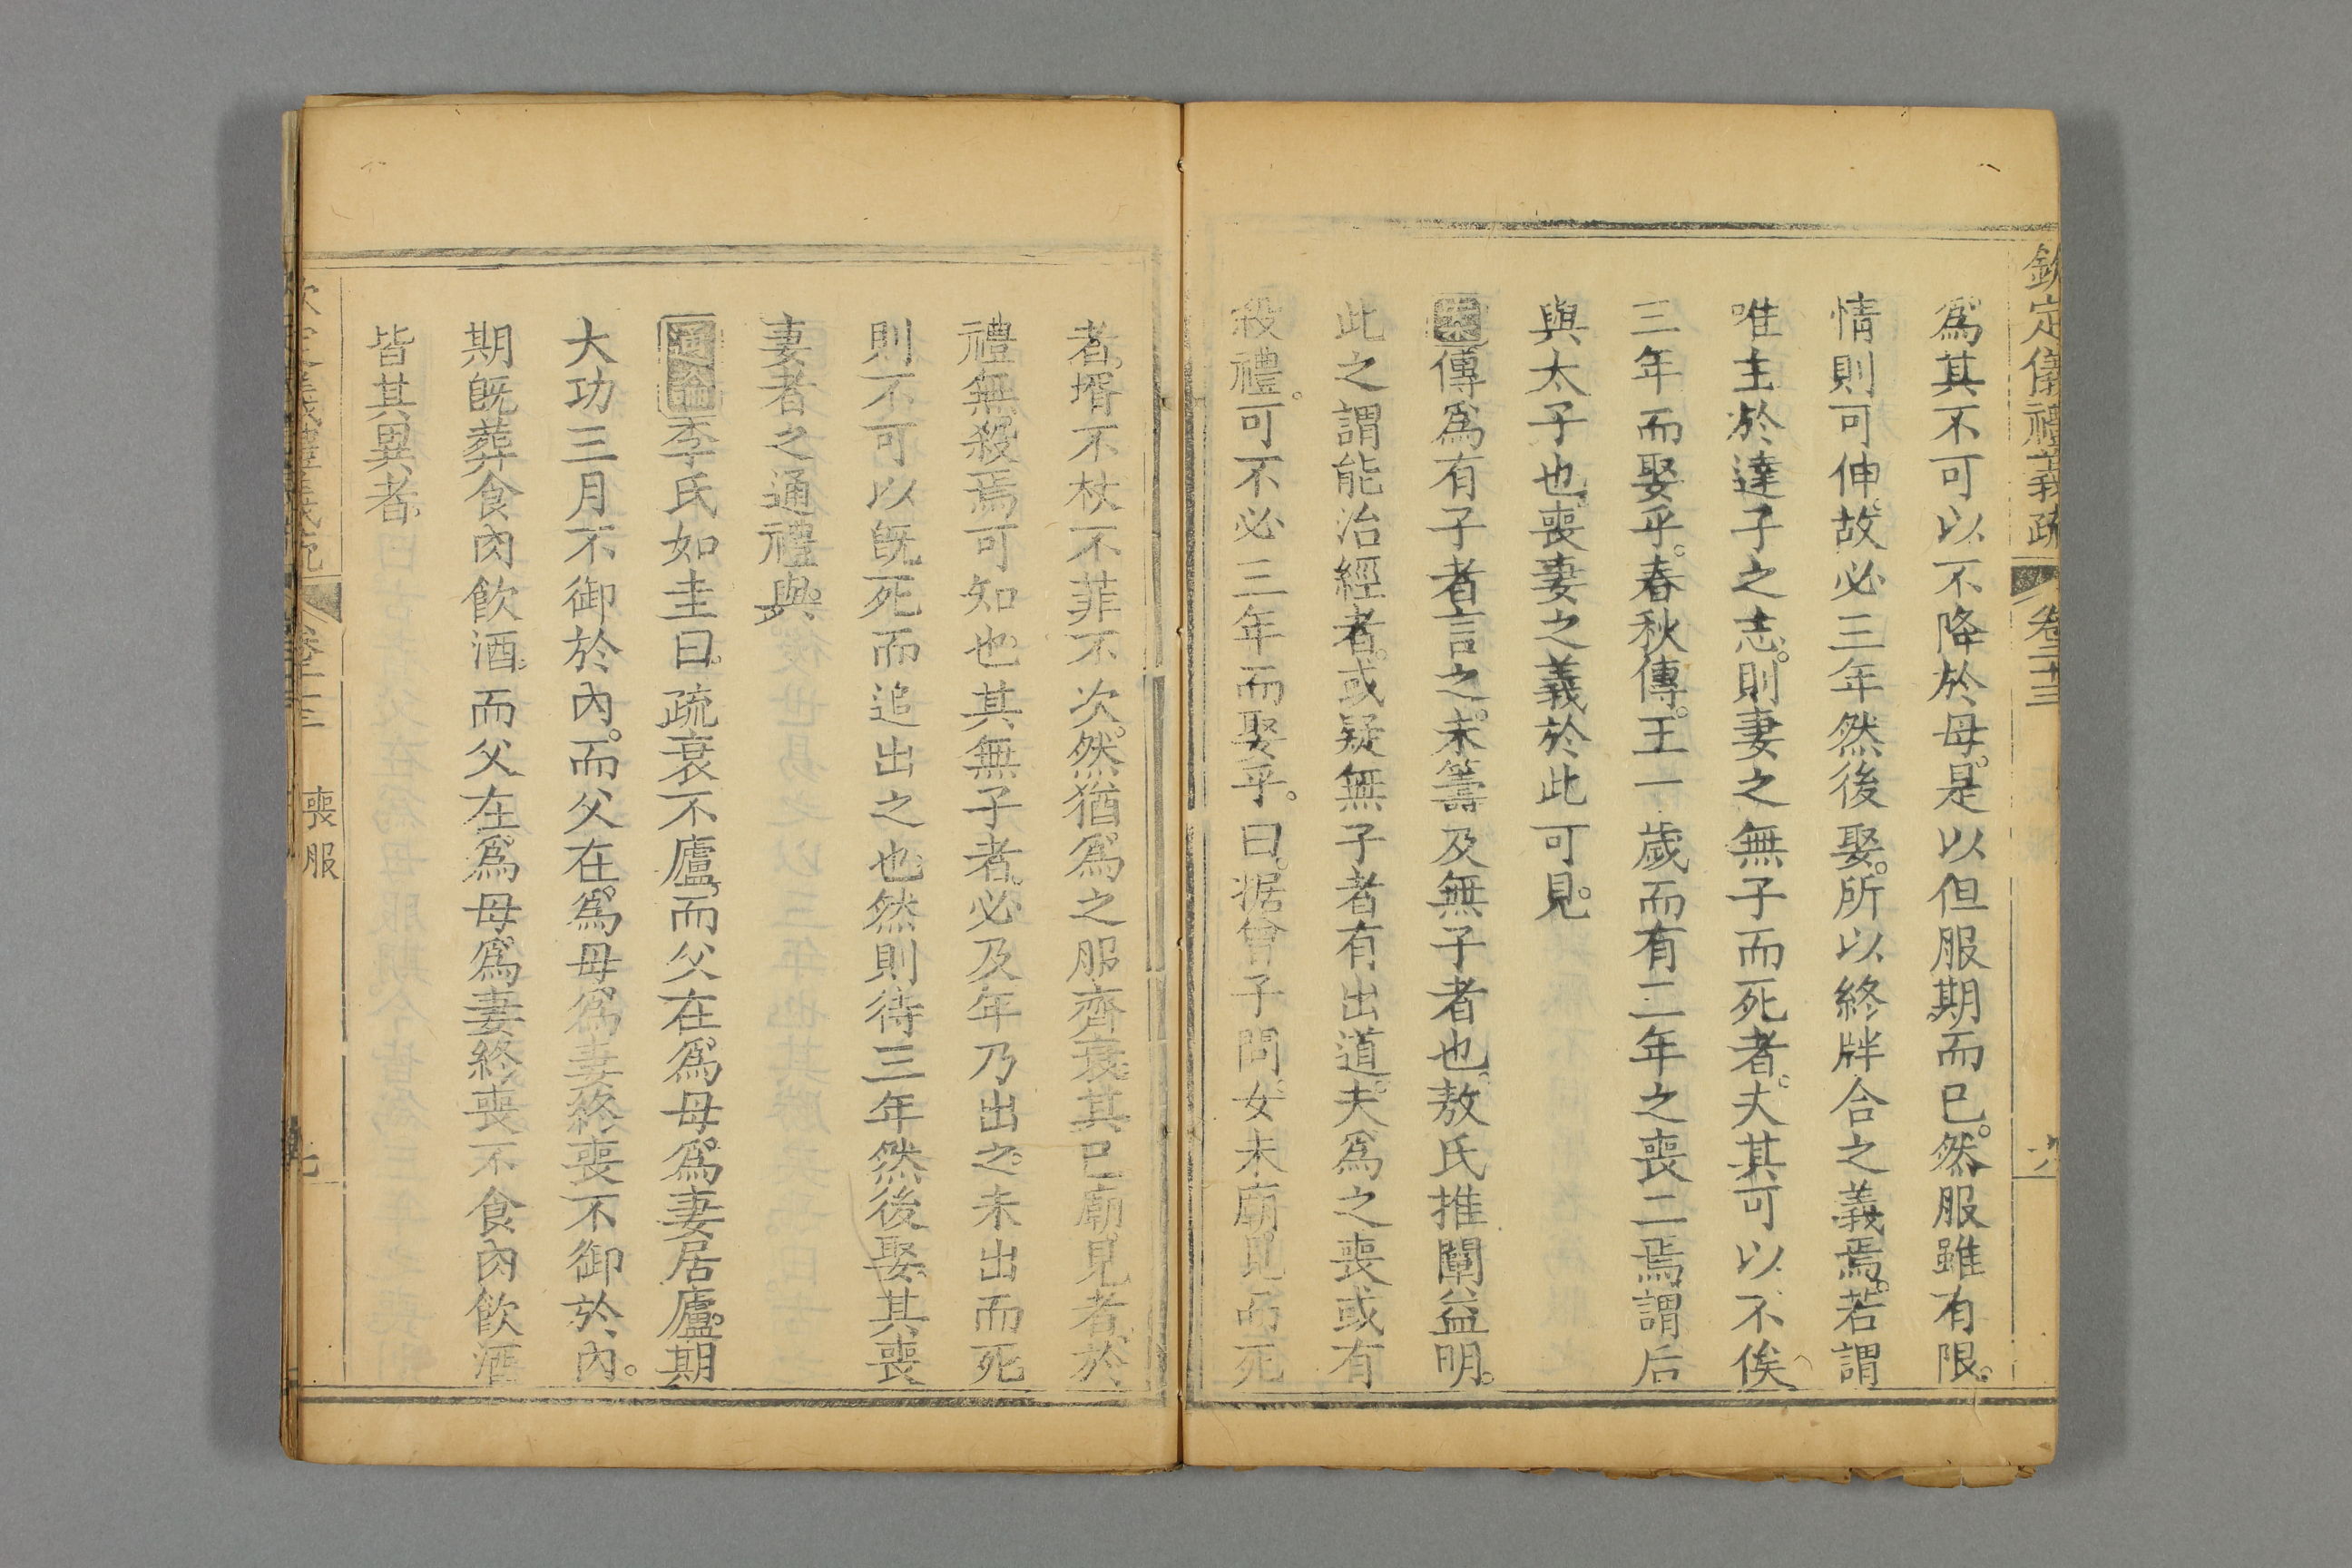 欽定儀禮義疏 卷二十三
爲其不可以不降於母。是以但服期而已。然服雖有限。
情則可伸。故必三年然後娶。所以終牉合之義焉。若謂
唯主於達子之志。則妻之無子而死者。夫其可以不俟
三年而娶乎。春秋傳。王一歲而有二年之喪二焉謂后
與太子也。喪妻之義於此可見。
案傳爲有子者言之。未籌及無子者也。敖氏推闡益明。
此之謂能治經者。或疑無子者有出道。夫爲之喪或有
殺禮。可不必三年而娶乎。曰。据曾子問。女未廟見而死
者。壻不杖不菲不次。然猶爲之服齊衰。其已廟見者。於
禮無殺焉可知也。其無子者。必及年乃出之。未出而死
則不可以旣死而追出之也。然則待三年然後娶。其喪
妻者之通禮與。
通論李氏如圭曰。疏衰不廬。而父在。爲母爲妻居廬。期
大功三月不御於內。而父在。爲母爲妻終喪不御於內。
期旣葬食肉飲酒。而父在爲母。爲妻終喪不食肉飲酒
皆其異者。
欽定儀禮義疏 卷二十三 喪服 七